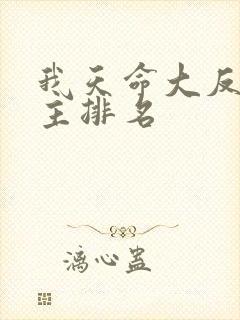 我天命大反
主排名
漓心蛊